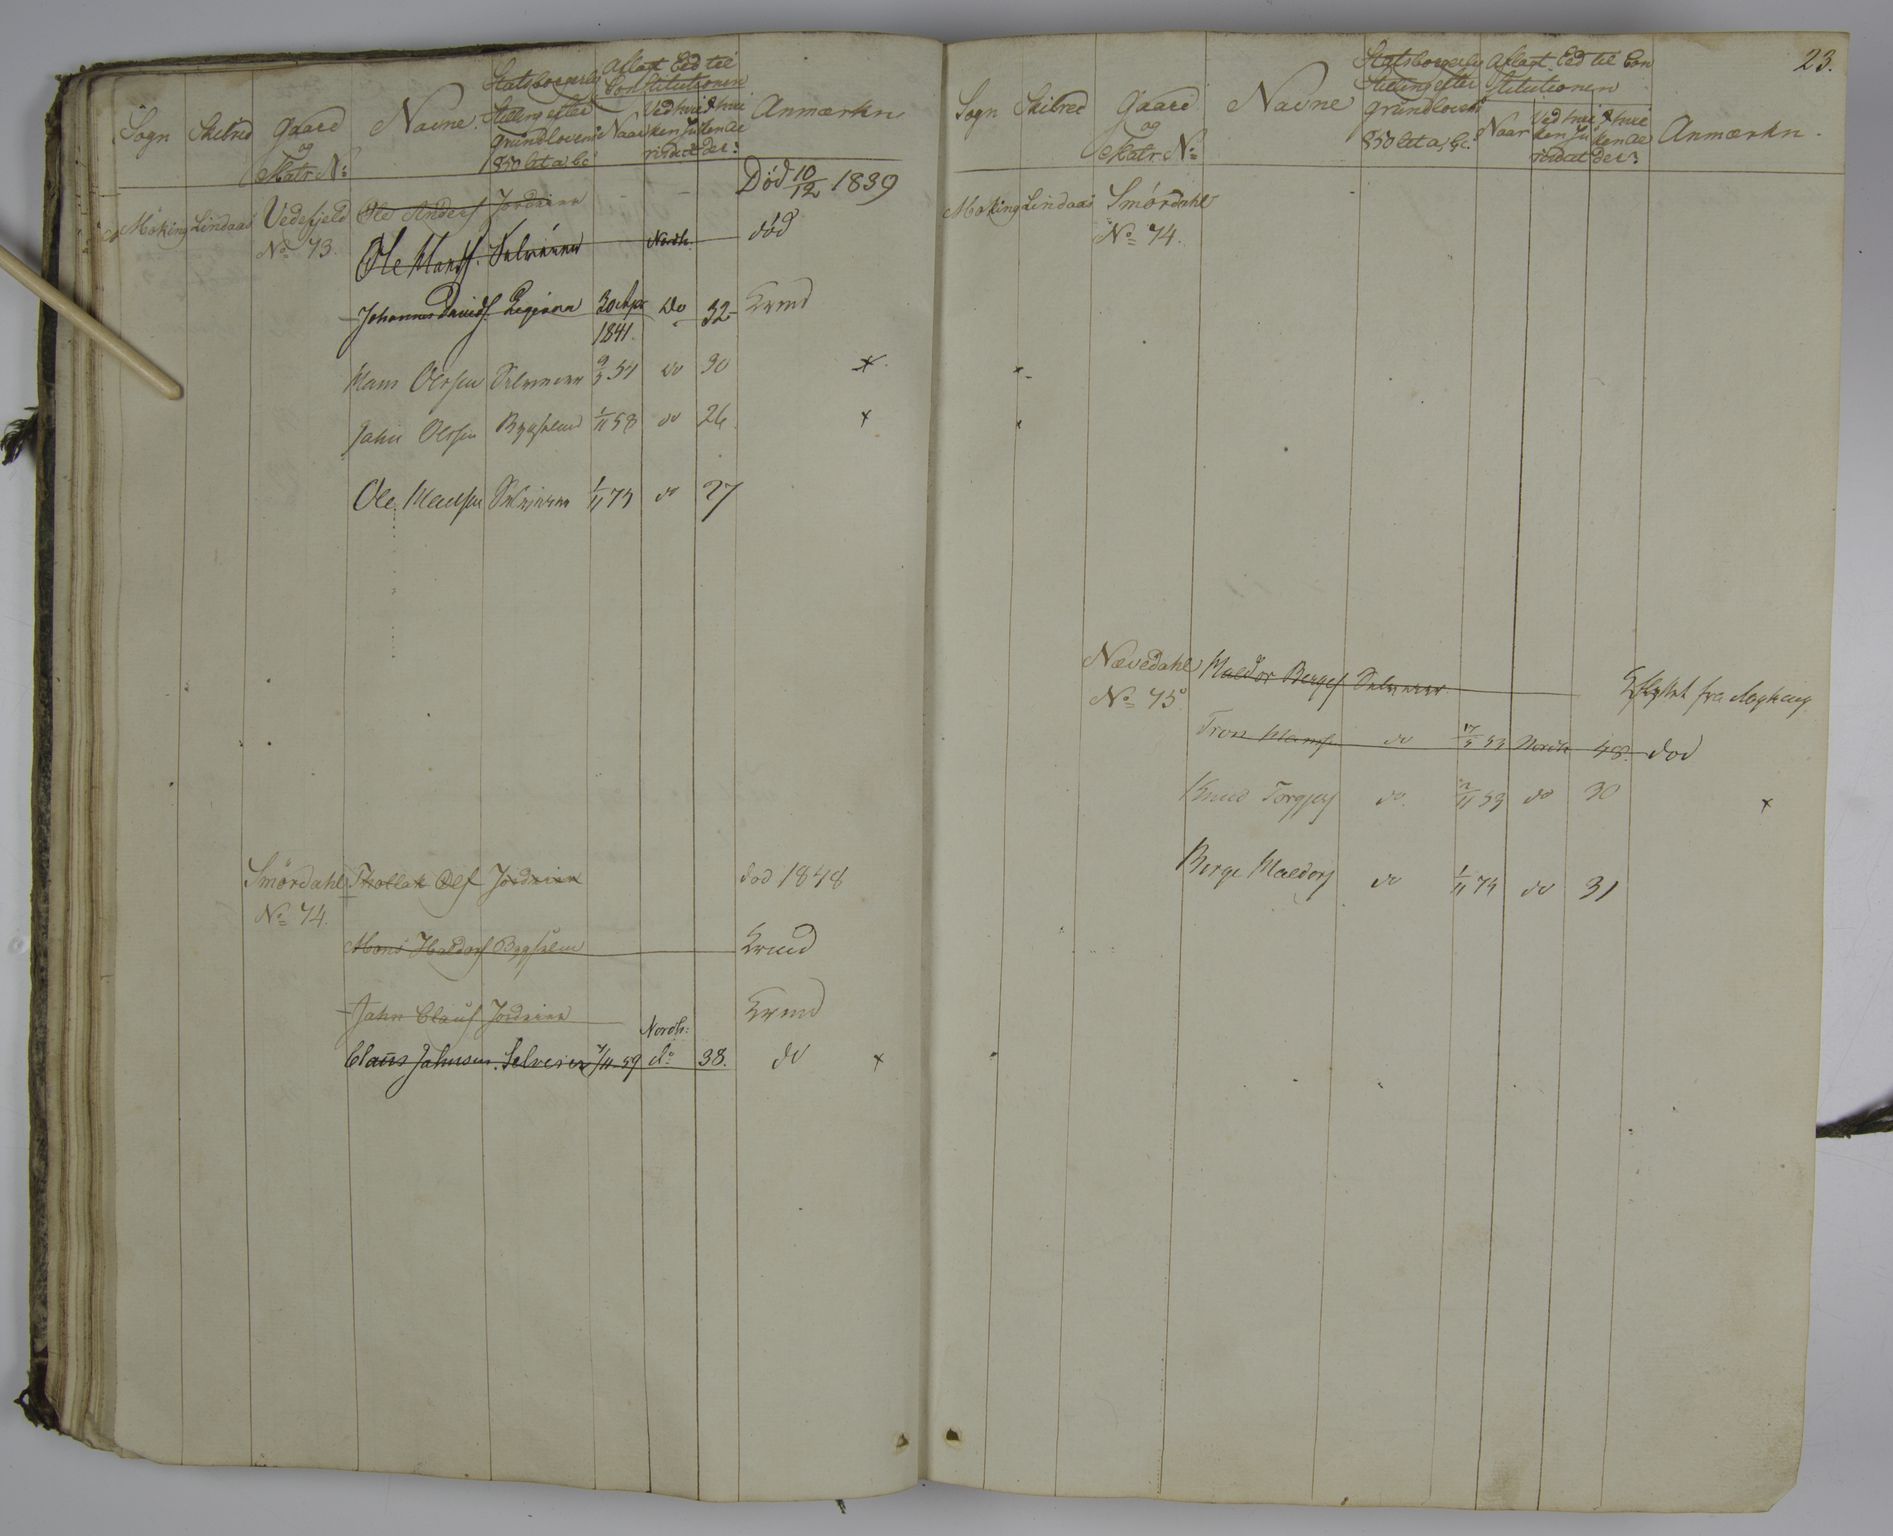 Sogn Skibred Gaard og Matr. No: Navne. Statsborgerlig Stilling efter Grundlovens § 50 lit a, b, c Aflagt Eed til Constitutionen Naar Ved hvilken Juridict & hvilkende der: Anmærkn
Møking Lindaas Vedefjeld Ole Anders Jordeier Død 10/12 1839
No 73. Ole Hans. Selveier Nordh. død
Johannes Davids. 30 Apr 1841. Do 32
Hans Olessen Selveier 9/5 54 do 30 x
Jahn Olssen Bygselm 1/11 58 do 26 x
Ole Madsen Selveier 1/11 73 do 27
Smørdahl Thollak Ols Jordeier død 1848
No 74.
Mons Haldors Bygselm
Jahn Claus Jordeier
Nordh:
Claus Jahnsen. Selveier /11 59 do 38. do x
23.
Sogn Skibred Gaard og Matr. No: Navne Statsborgerlig Stilling efter Grundlovens § 50 lit a, b, c. Aflagt Eed til Constitutionen Naar Ved hvilken Juridict & hvilkende der: Anmærkn.
Møking Lindaas Smørdahl
No 74.
Nævedahl Haldor Berges Selveier fra
No 75.
Tron Hans do 17/5 53 Nordh 48. død
Knud Torgjers do. 2/11 59 do 30 x
Berge Haldors do 1/11 73 do 31